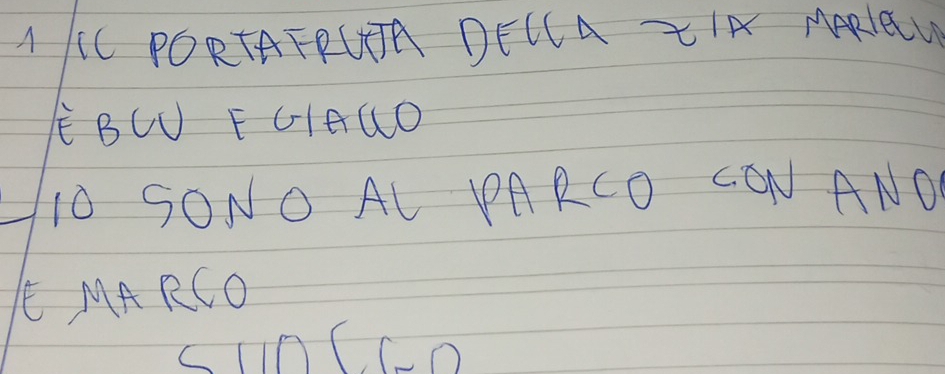 1 IL PORTAFRUTTA DELLA ZIA
È BLU E GIALLO
IO SONO AL PARCO CON
E MARCO